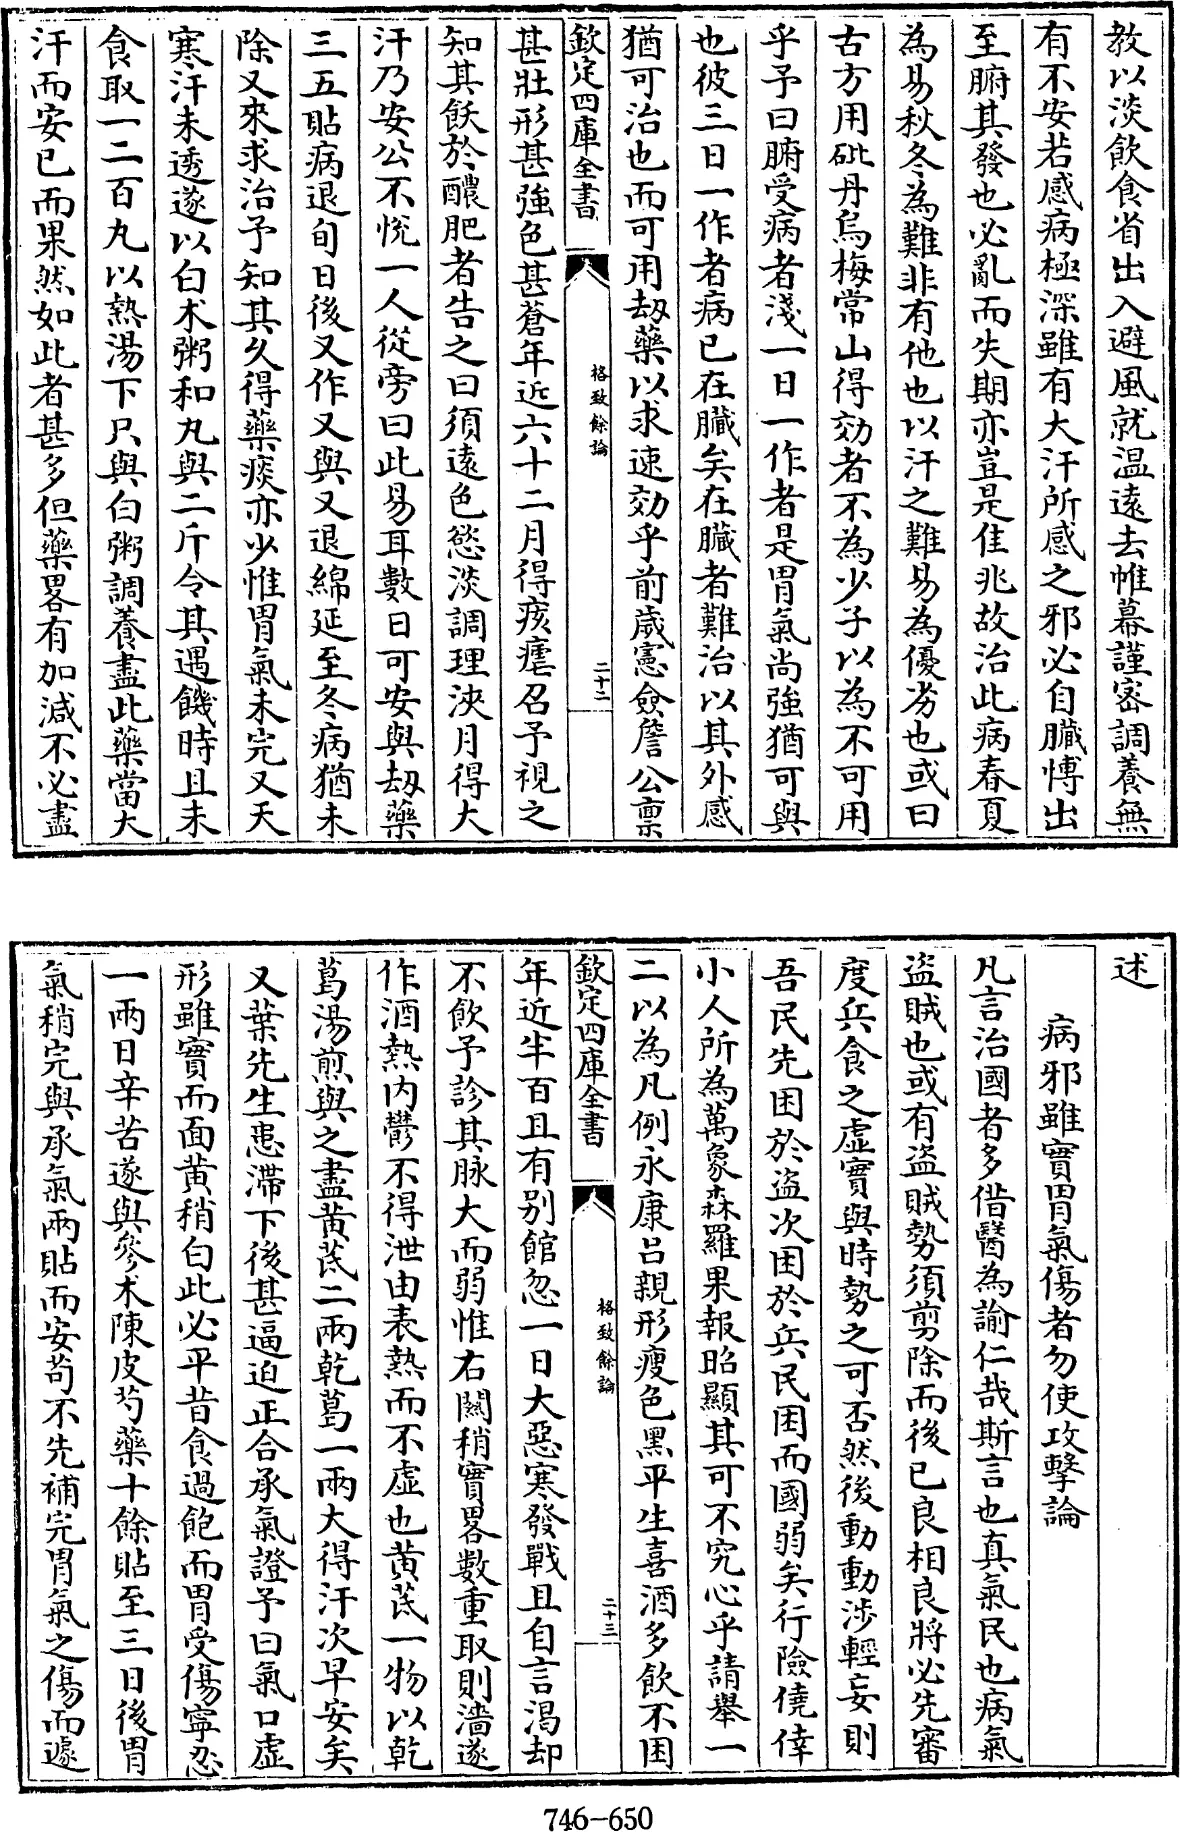 教以淡飲食省出入避風就温遠去帷幕謹密調養無
有不安若感病極深雖有大汗所感之邪必自臟慱出
至腑其發也必亂而失期亦豈是佳兆故治此病春夏
為易秋冬為難非有他也以汗之難易為優劣也或曰
古方用砒丹烏梅常山得効者不為少子以為不可用
乎予曰腑受病者淺一日一作者是胃氣尚強猶可與
也彼三日一作者病已在臟矣在臟者難治以其外感
猶可治也而可用刼藥以求速効乎前歳憲僉詹公禀
欽定四庫全書
格致餘論
二十二
甚壯形甚強色甚蒼年近六十二月得痎瘧召予視之
知其飫於醲肥者告之曰須遠色慾淡調理浹月得大
汗乃安公不悦一人從旁曰此易耳數日可安與刼藥
三五貼病退旬日後又作又與又退綿延至冬病猶未
除又來求治予知其久得藥痰亦少惟胃氣未完又天
寒汗未透遂以白术粥和丸與二斤令其遇饑時且未
食取一二百丸以熱湯下只與白粥調養盡此藥當大
汗而安已而果然如此者甚多但藥畧有加減不必盡
述
病邪雖實胃氣傷者勿使攻擊論
凡言治國者多借醫為諭仁哉斯言也真氣民也病氣
盜賊也或有盜賊勢須剪除而後已良相良將必先審
度兵食之虚實與時勢之可否然後動動涉輕妄則
吾民先困於盜次困於兵民困而國弱矣行險僥倖
小人所為萬象森羅果報昭顯其可不究心乎請舉一
二以為凡例永康吕親形瘦色黑平生喜酒多飲不困
欽定四庫全書
格致餘論
二十三
年近半百且有别館忽一日大惡寒發戰且自言渴却
不飲予診其脉大而弱惟右關稍實畧數重取則濇遂
作酒熱内鬱不得泄由表熱而不虚也黄芪一物以乾
葛湯煎與之盡黄芪二兩乾葛一兩大得汗次早安矣
又葉先生患滯下後甚逼迫正合承氣證予曰氣口虚
形雖實而面黄稍白此必平昔食過飽而胃受傷寧忍
一兩日辛苦遂與參术陳皮芍藥十餘貼至三日後胃
氣稍完與承氣兩貼而安苟不先補完胃氣之傷而遽
746-650